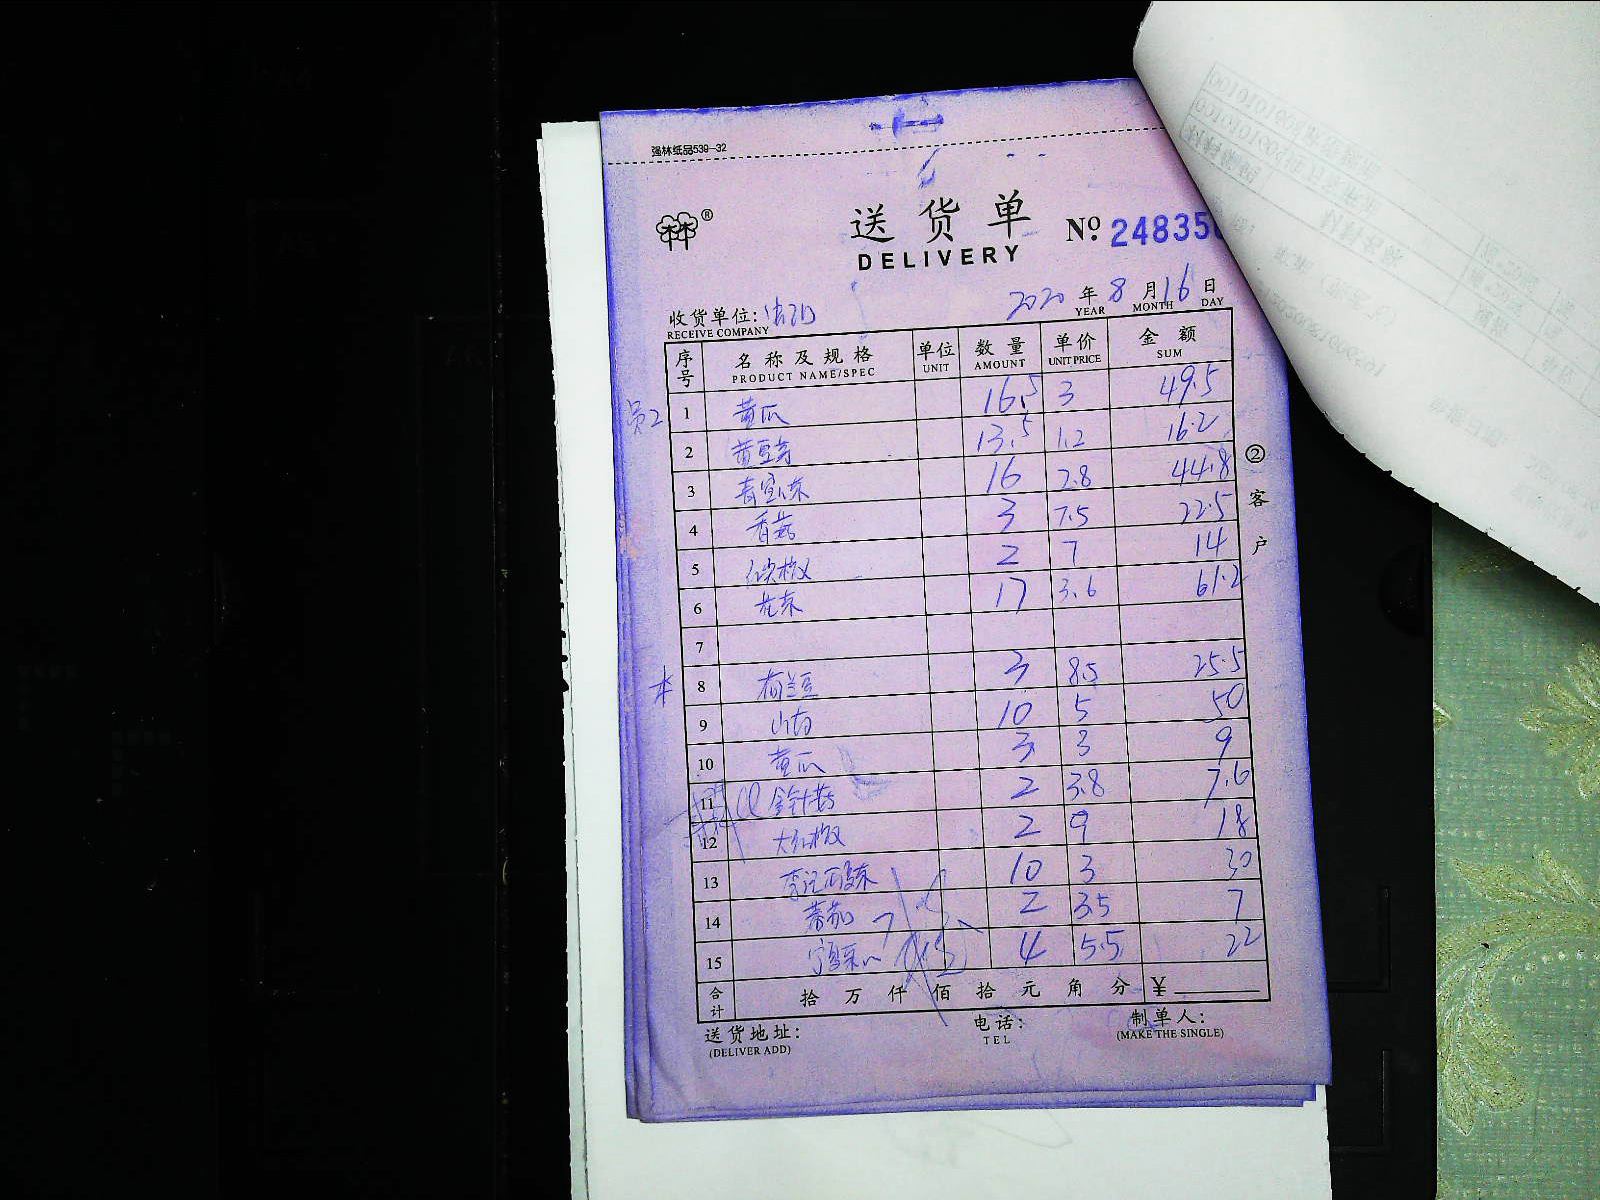 强林纸品539-32
®
送货单
DELIVERY
№ 248356
2020 年 8 月 16 日
YEAR MONTH DAY
收货单位:
RECEIVE COMPANY
序号 名称及规格 单位 数量 单价 金额
PRODUCT NAME/SPEC UNIT AMOUNT UNIT PRICE SUM
1 黄瓜 16.5 3 49.5
2 黄豆芽 13.5 1.2 16.2
3 16 2.8 44.8
4 香菇 3 7.5 22.5
5 尖椒 2 7 14
6 花菜 17 3.6 61.2
7
8 荷兰豆 3 8.5 25.5
9 山药 10 5 50
10 黄瓜 3 3 9
11 金针菇 2 3.8 7.6
12 大红椒 2 9 18
13 10 3 30
14 蕃茄 2 3.5 7
15 4 5.5 22
合计 拾 万 仟 佰 拾 元 角 分 ¥
②客户
送货地址:
(DELIVER ADD)
电话:
TEL
制单人:
(MAKE THE SINGLE)